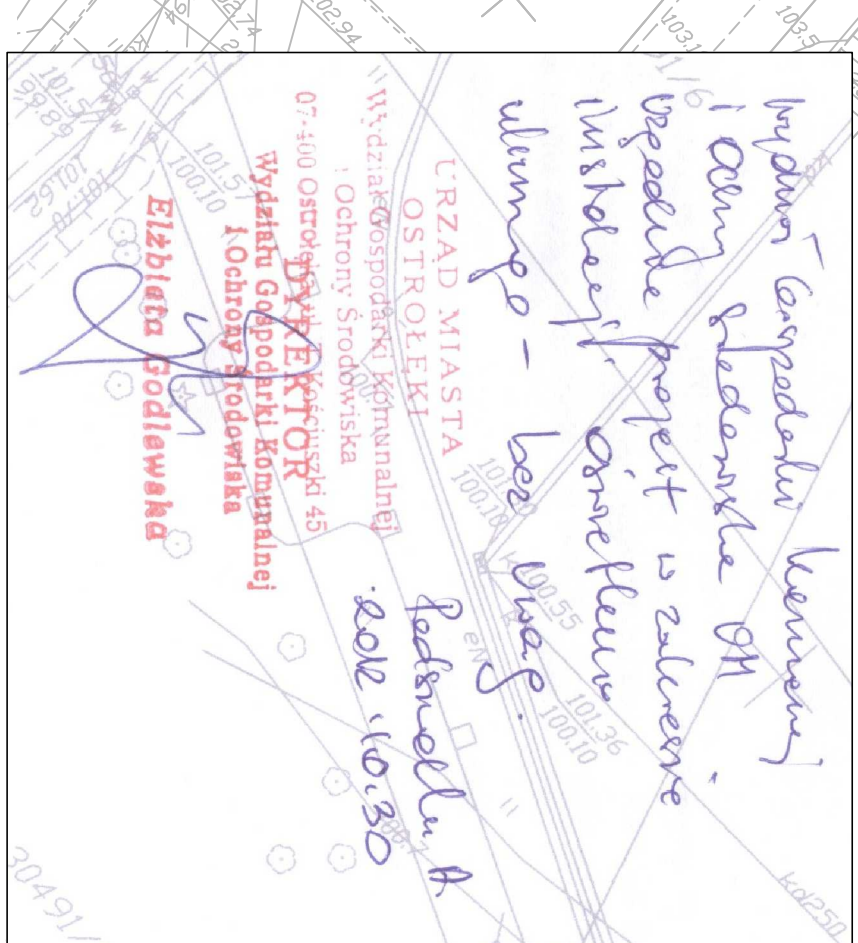 Wydział Gospodarki Komunalnej
i Ochrony Środowiska UM
uzgadnia projekt w zakresie
instalacji oświetlenia
ulicznego - bez uwag.
A.
2012.10.30
URZĄD MIASTA
OSTROŁĘKI
Wydział Gospodarki Komunalnej
i Ochrony Środowiska
07-400 Ostrołęka, Kościuszki 45
DYREKTOR
Wydziału Gospodarki Komunalnej
i Ochrony Środowiska
Elżbieta Godlewska
102.94
103.1
103.5
101.5
99.89
101.62
101.70
101.5
100.10
100.10
100.55
eN
101.36
100.10
kd250
30491/